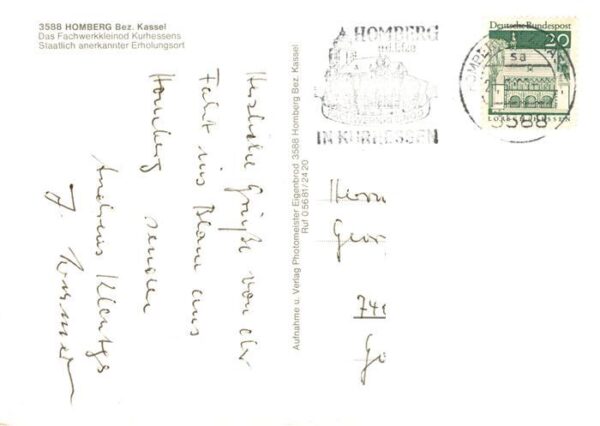 3588 HOMBERG Bez. Kassel
Das Fachwerkkleinod Kurhessens
Staatlich anerkannter Erholungsort
Herzliche Grüße von der
Fahrt ins Blaue aus
Homberg senden
Andreas
J.
Aufnahme u. Verlag Photomeister Eigenbrod 3588 Homberg Bez. Kassel
Ruf 05681/2420
HOMBERG
IN KURHESSEN
Deutsche Bundespost
20
LORSCH/HESSEN
3588
Herrn
Geor
74